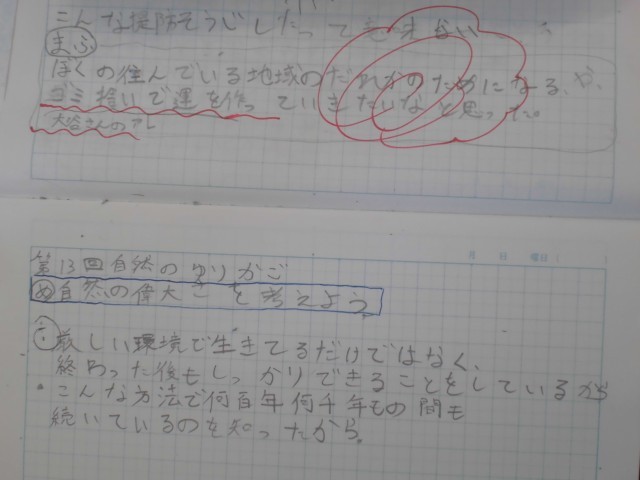 こんな堤防そうじしたって
まふ
ぼくの住んでいる地域のだれかのためになる、
ゴミ拾いで運を作っていきたいなと思った。
大谷さんのアレ
月 日 曜日
第13回自然のゆりかご
め自然の偉大さを考えよう
厳しい環境で生きてるだけではなく、
終わった後もしっかりできることをしているから
・こんな方法で何百年何千年もの間も
続いているのを知ったから。